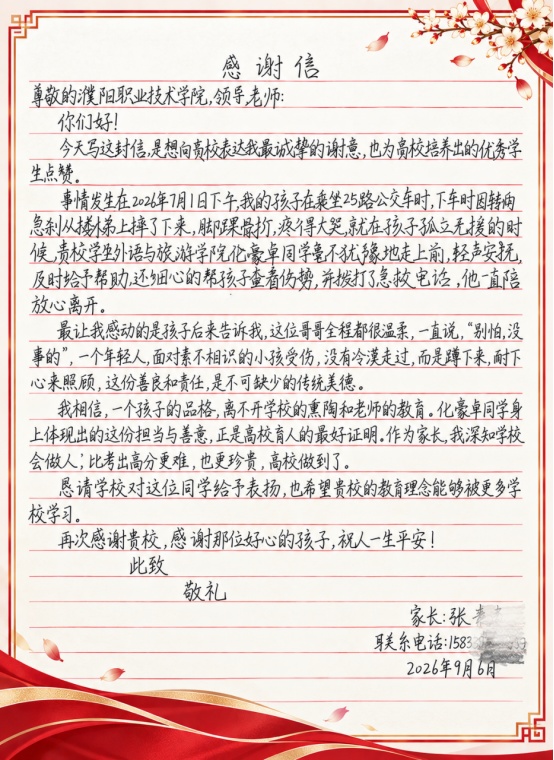 感谢信
尊敬的濮阳职业技术学院,领导,老师:
你们好!
今天写这封信,是想向贵校表达我最诚挚的谢意,也为贵校培养出的优秀学
生点赞。
事情发生在2026年7月1日下午,我的孩子在乘坐25路公交车时,下车时因转两
急刹从楼梯上摔了下来,脚踝骨折,疼得大哭,就在孩子孤立无援的时
候,贵校学生外语与旅游学院化豪卓同学毫不犹豫地走上前,轻声安抚,
及时给予帮助,还细心的帮孩子查看伤势,并拨打了急救电话,他一直陪
放心离开。
最让我感动的是孩子后来告诉我,这位哥哥全程都很温柔,一直说,"别怕,没
事的",一个年轻人,面对素不相识的小孩受伤,没有冷漠走过,而是蹲下来,耐下
心来照顾,这份善良和责任,是不可缺少的传统美德。
我相信,一个孩子的品格,离不开学校的熏陶和老师的教育。化豪卓同学身
上体现出的这份担当与善意,正是高校育人的最好证明。作为家长,我深知学校
会做人;比考出高分更难,也更珍贵,高校做到了。
恳请学校对这位同学给予表扬,也希望贵校的教育理念能够被更多学
校学习。
再次感谢贵校,感谢那位好心的孩子,祝人一生平安!
此致
敬礼
家长:张
联系电话:1583
2026年9月6日